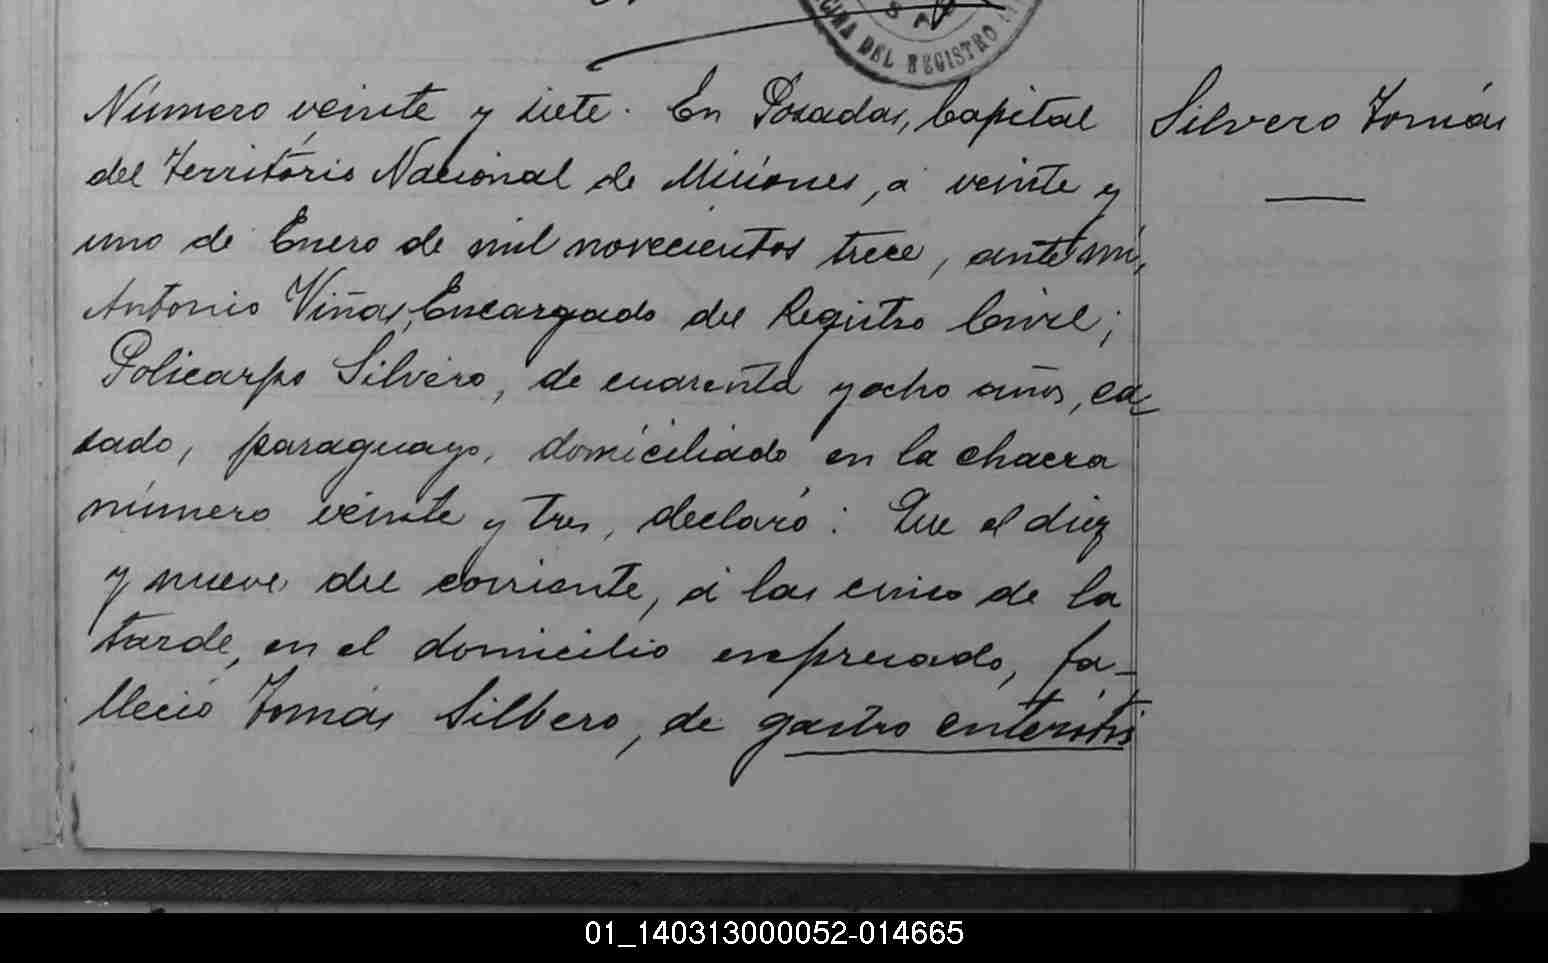 DEL REGISTRO
Número veinte y siete. En Posadas, Capital
del Território Nacional de Misiones, á veinte y
uno de Enero de mil novecientos trece, ante mí,
Antonio Viñas, Encargado del Registro Civil;
Policarpo Silvero, de cuarenta y ocho años, ca-
sado, paraguayo, domiciliado en la chacra
número veinte y tres, declaró: Que el diez
y nueve del corriente, á las cinco de la
tarde, en el domicilio expresado, fa-
lleció Tomás Silbero, de gastro enteritis
Silvero Tomás
01_140313000052-014665